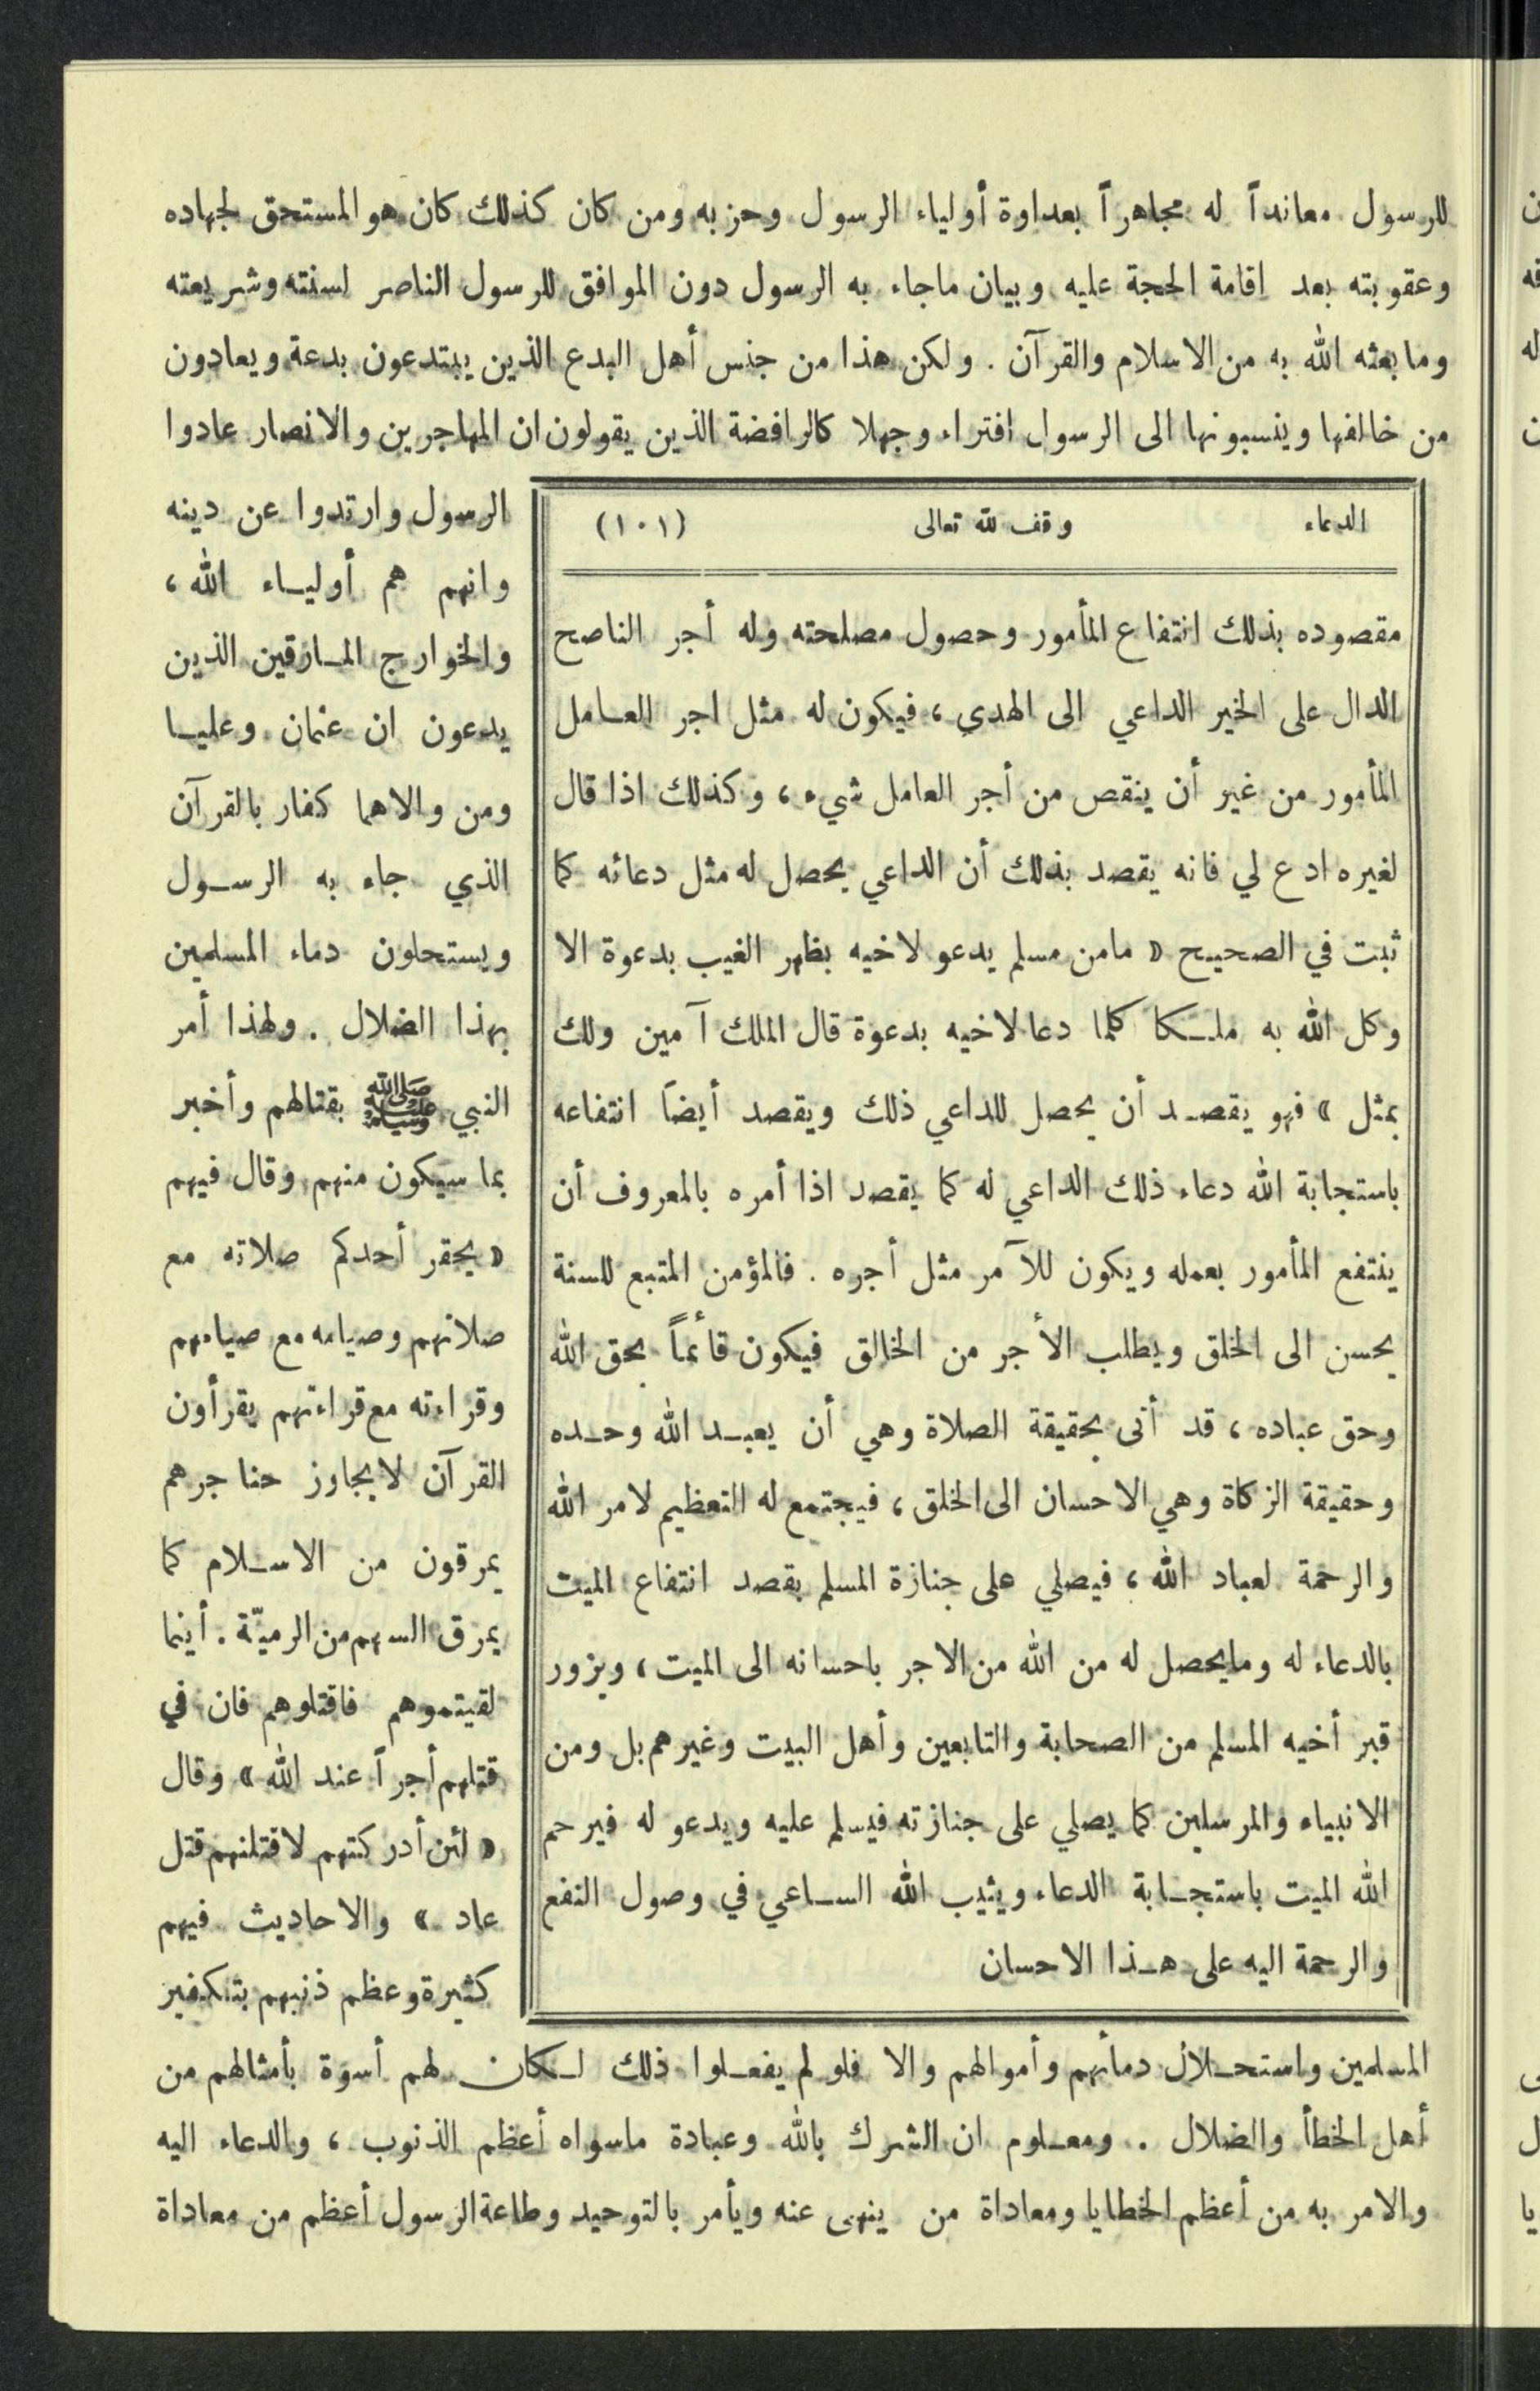 للرسول معانداً له مجاهراً بعداوة أولياء الرسول وحزبه ومن كان كذلك كان هو المستحق لجهاده
وعقوبته بعد اقامة الحجة عليه وبيان ماجاء به الرسول دون الموافق للرسول الناصر لسنته وشريعته
وما بعثه الله به من الاسلام والقرآن . ولكن هذا من جنس أهل البدع الذين يبتدعون بدعة ويعادون
من خالفها وينسبونها الى الرسول افتراء وجهلا كالرافضة الذين يقولون ان المهاجرين والانصار عادوا
الرسول وارتدوا عن دينه
وانهم هم أولياء الله ،
والخوارج المارقين الذين
يدعون ان عثمان وعليا
ومن والاهما كفار بالقرآن
الذي جاء به الرسول
ويستحلون دماء المسلمين
بهذا الضلال . ولهذا أمر
النبي ﷺ بقتالهم وأخبر
بما سيكون منهم وقال فيهم
« يحقر أحدكم صلاته مع
صلاتهم وصيامه مع صيامهم
وقراءته مع قراءتهم يقرأون
القرآن لايجاوز حناجرهم
يمرقون من الاسلام كما
يمرق السهم من الرميّة . أينما
لقيتموهم فاقتلوهم فان في
قتلهم أجراً عند الله » وقال
« لئن أدركتهم لاقتلنهم قتل
عاد » والاحاديث فيهم
كثيرة وعظم ذنبهم بتكفير
المسلمين واستحلال دمائهم وأموالهم والا فلو لم يفعلوا ذلك لكان لهم أسوة بأمثالهم من
أهل الخطأ والضلال . ومعلوم ان الشرك بالله وعبادة ماسواه أعظم الذنوب ، والدعاء اليه
والامر به من أعظم الخطايا ومعاداة من ينهى عنه ويأمر بالتوحيد وطاعة الرسول أعظم من معاداة
الدعاء وقف لله تعالى (١٠١)
مقصوده بذلك انتفاع المأمور وحصول مصلحته وله أجر الناصح
الدال على الخير الداعي الى الهدى ، فيكون له مثل اجر العامل
المأمور من غير أن ينقص من أجر العامل شيء ، وكذلك اذا قال
لغيره ادع لي فانه يقصد بذلك أن الداعي يحصل له مثل دعائه كما
ثبت في الصحيح « مامن مسلم يدعو لاخيه بظهر الغيب بدعوة الا
وكل الله به ملكا كلما دعا لاخيه بدعوة قال الملك آمين ولك
بمثل » فهو يقصد أن يحصل للداعي ذلك ويقصد أيضاً انتفاعه
باستجابة الله دعاء ذلك الداعي له كما يقصد اذا أمره بالمعروف أن
ينتفع المأمور بعمله ويكون للآمر مثل أجره . فالمؤمن المتبع للسنة
يحسن الى الخلق ويطلب الأجر من الخالق فيكون قائماً بحق الله
وحق عباده ، قد أتى بحقيقة الصلاة وهي أن يعبد الله وحده
وحقيقة الزكاة وهي الاحسان الى الخلق ، فيجتمع له التعظيم لامر الله
والرحمة لعباد الله ، فيصلي على جنازة المسلم بقصد انتفاع الميت
بالدعاء له ومايحصل له من الله من الاجر باحسانه الى الميت ، ويزور
قبر أخيه المسلم من الصحابة والتابعين وأهل البيت وغيرهم بل ومن
الانبياء والمرسلين كما يصلي على جنازته فيسلم عليه ويدعو له فيرحم
الله الميت باستجابة الدعاء ويثيب الله الساعي في وصول النفع
والرحمة اليه على هذا الاحسان